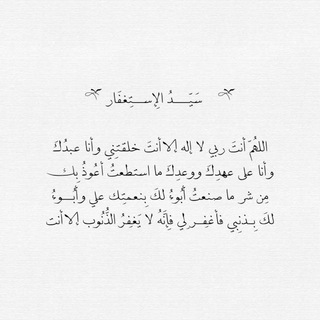 سَيَـــدُ الإِســـتِغفَار
اللهُمّ أنتَ ربي لا إله إلا أنتَ خلقتِني وأنا عبدُكَ
وأنا على عهدِكَ ووعدِكَ ما استطعتُ أعُوذُ بِك
مِن شر ما صنعتُ أبُوءُ لكَ بِنعمتِك علي وأبُـــوءُ
لكَ بِـذنبِي فأغفِـرلي فِإنَّهُ لا يَغفِرُ الذُّنُوب إلا أنت